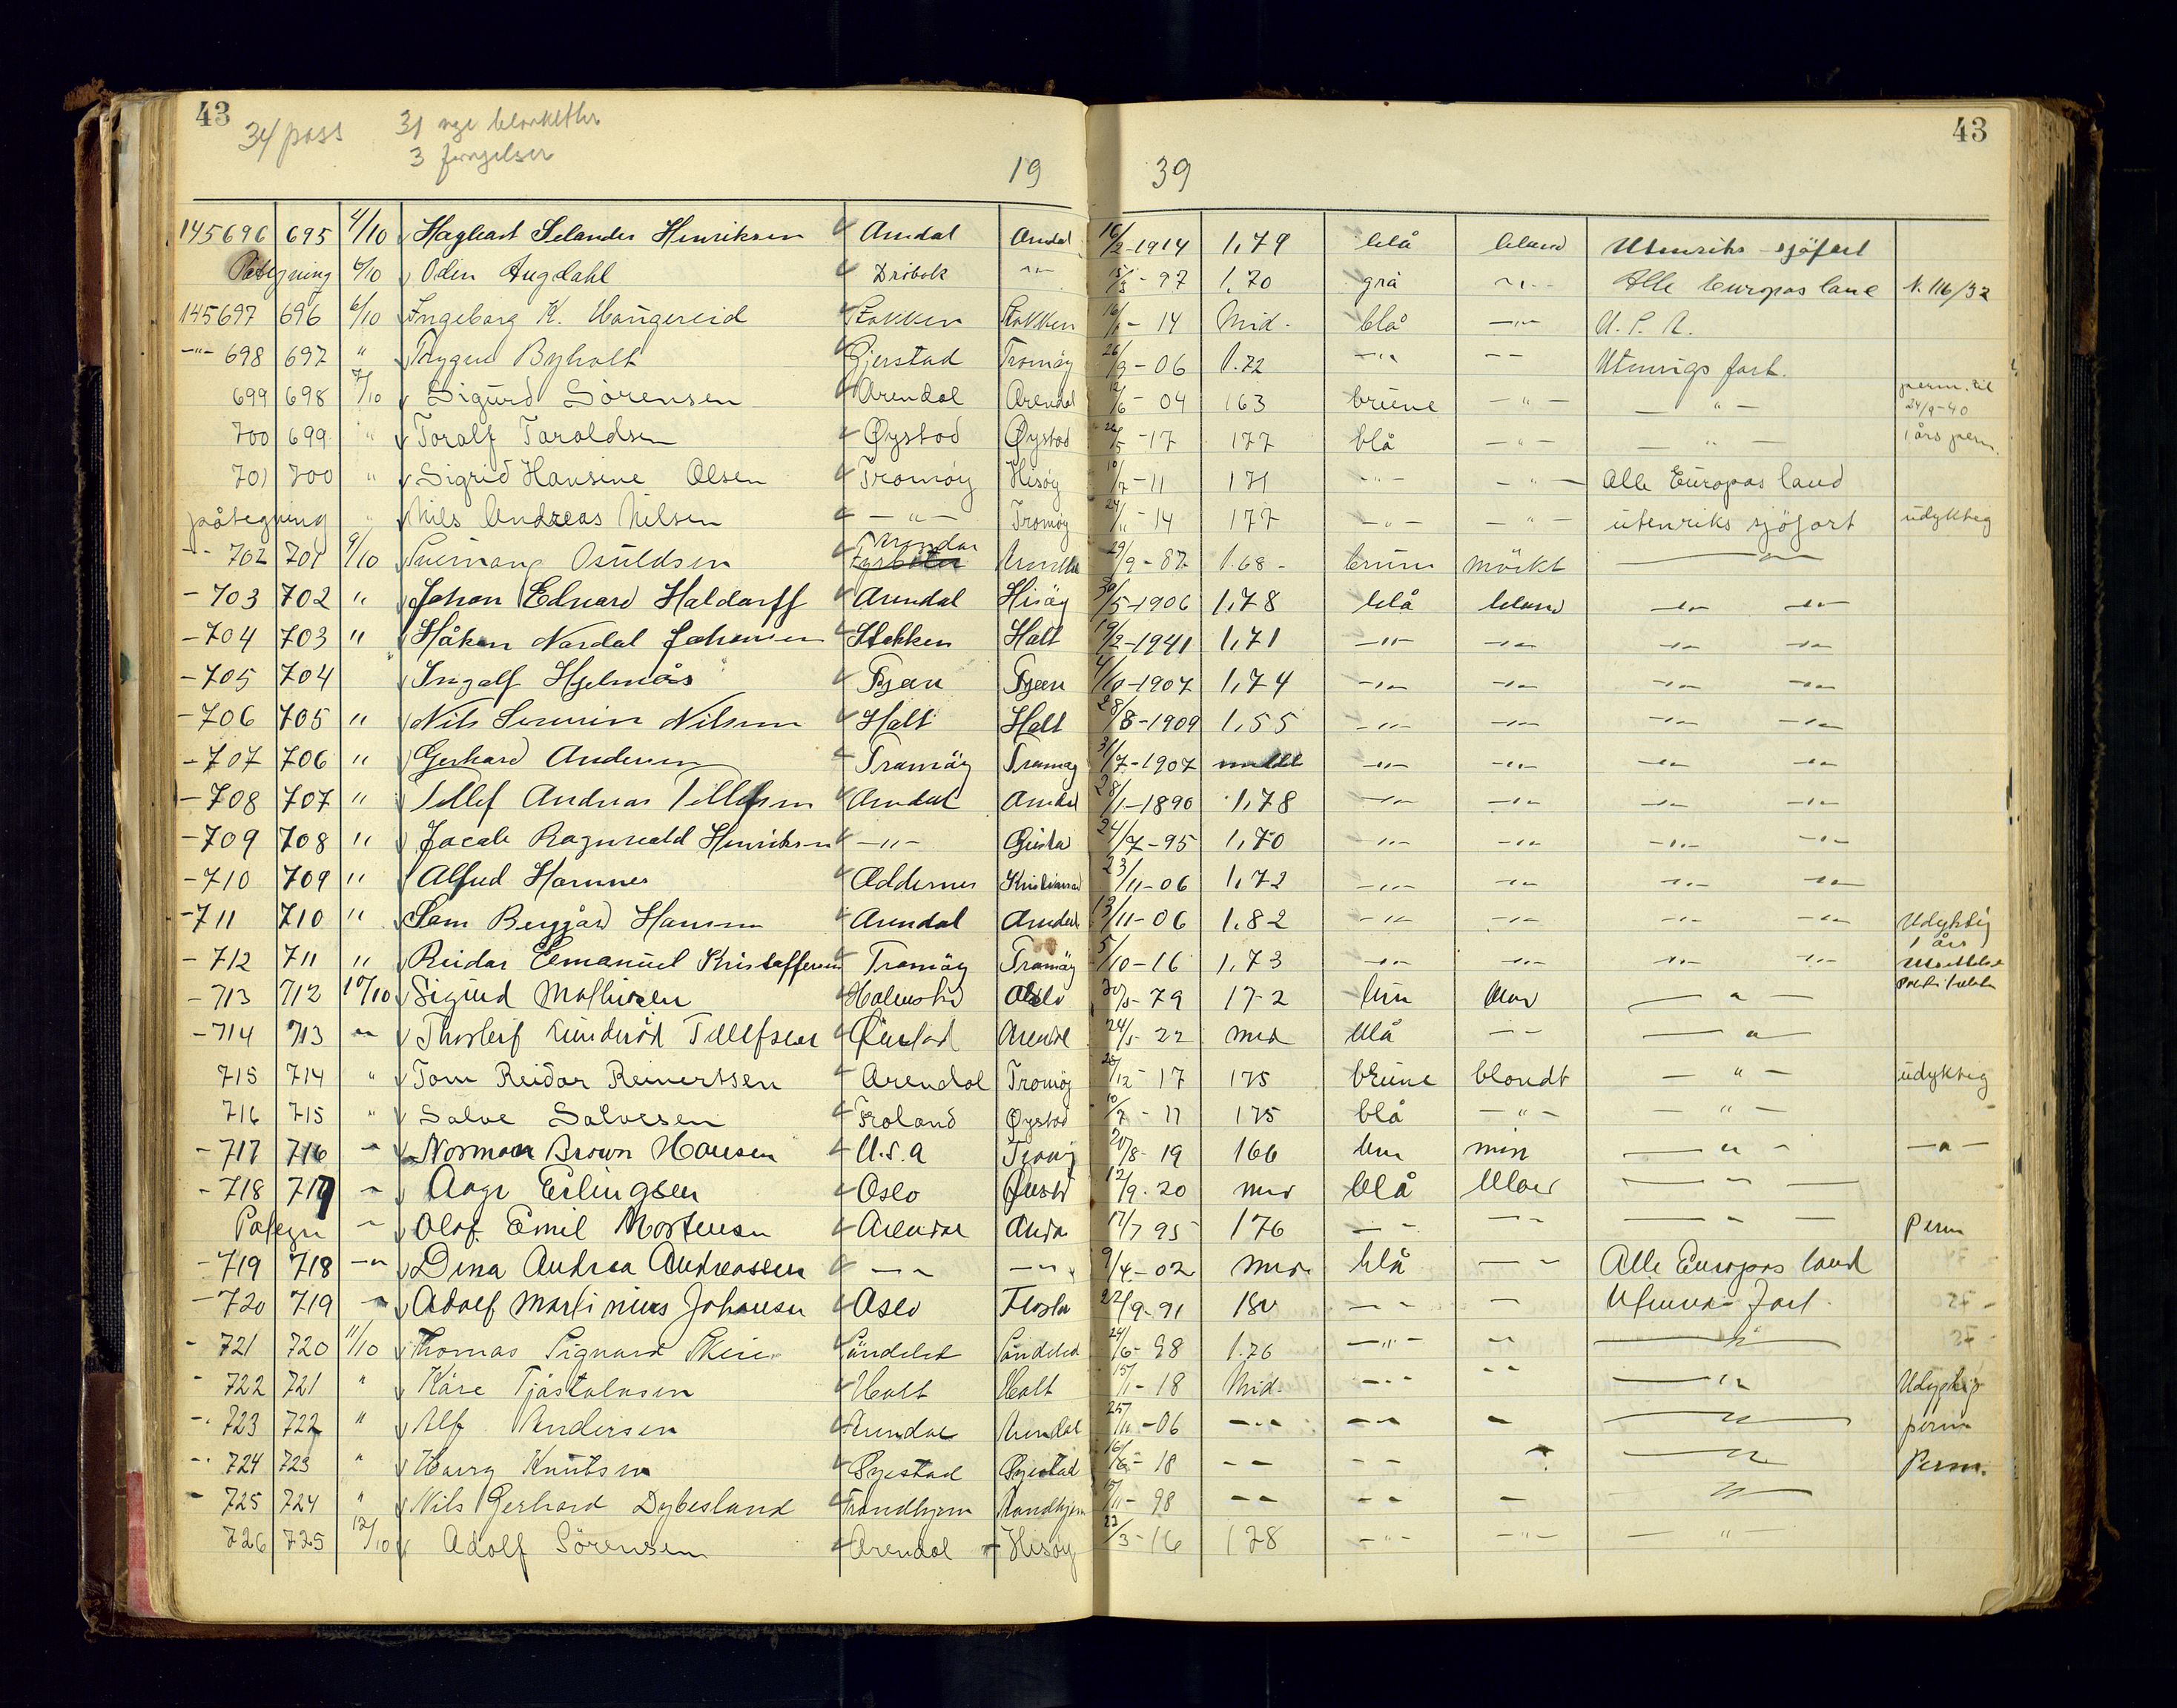 43 43
34 pass 31 nye blanketter
3 fornyelser
19 39
145696 695 4/10 Hagbart Selander Henriksen Arendal Arendal 16/2-1914 1,79 blå blond Utenriks sjöfart
Påtegning 6/10 Odin Augdahl Dröbak -"- 15/3-97 1,70 grå -"- Alle Europas land N. 116/32
145697 696 6/10 Ingeborg K. Haugereid Stokken Stokken 14 Mid. blå -"- U.S.A.
-"- 698 697 " Trygve Byholt Gjerstad Tromöy 26/9-06 1.72 -"- -- Utenrigs fart.
699 698 7/10 Sigurd Sörensen Arendal Arendal 12/6-04 163 brune -"- -"- perm. til 24/9-40
700 699 " Toralf Taraldsen Øystad Øystad /5-17 177 blå -"- -"- 1 års perm.
701 700 " Sigrid Hansine Olsen Tromöy Hisöy 10/7-11 171 -"- -"- Alle Europas land
påtegning " Nils Andreas Nilsen -"- Tromöy 24/11-14 177 -"- -"- utenriks sjöfart udyktig
-- 702 701 9/10 Osuldsen Arendal Arendal 29/9-87 1.68- brun mörkt -"-
-703 702 " Johan Edvard Haldorff Arendal Hisöy 30/5-1906 1,78 blå blond -"- -"-
-704 703 " Håkon Nordal Johansen Stokken Holt 19/2-1941 1,71 -"- -"- -"- -"-
-705 704 " Ingolf Hjelmås Fjære Fjære 4/10-1907 1,74 -"- -"- -"- -"-
-706 705 " Nils Severin Nilsen Holt Holt 28/8-1909 1,55 -"- -"- -"- -"-
-707 706 " Gerhard Andersen Tromöy Tromöy 31/7-1907 middels -"- -"- -"- -"-
-708 707 " Tellef Andreas Tellefsen Arendal Arendal 28/1-1890 1,78 -"- -"- -"- -"-
-709 708 " Jacob Ragnvald Henriksen -"- Öiestad 24/7-95 1,70 -"- -"- -"- -"-
-710 709 " Alfred Hamnes Oddernes Kristiansand 23/11-06 1,72 -"- -"- -"- -"-
-711 710 " Sam Berggård Hansen Arendal Arendal 13/11-06 1,82 -"- -"- -"- -"- Udyktig
-712 711 " Reidar Emanuel Kristoffersen Tromöy Tromöy 5/10-16 1,73 -"- -"- -"- -"- 1 års utsettelse
-713 712 10/10 Sigurd Mathisen Holmestrd Oslo 30/5-79 172 brun blon -"-
-714 713 -"- Thorleif Tellefsen Öiestad Arendal 24/5-22 med blå -- -"-
715 714 " Tom Reidar Reinertsen Arendal Tromöy 28/12-17 175 brune blondt -"- udyktig
716 715 " Salve Salvesen Froland Øystad 10/7-11 175 blå -"- -"-
-717 716 -"- Norman Brown Hansen U.S.A Tromöy 20/8-19 166 brun -"- -"-
-718 717 -"- Aage Erlingsen Oslo Öiestd 12/9-20 med blå blond -"-
Påtegn -"- Olaf Emil Mortensen Arendal Arendal 17/7 95 176 -"- -"- -"- Perm
-719 718 -"- Dina Andrea Andreassen -"- -"- 9/4-02 med. blå -"- Alle Europas land
-720 719 -"- Adolf Martinius Johansen Oslo Flosta 22/9-91 180 -"- - Utenriks Fart.
-721 720 11/10 Thomas Söndeled Söndeled 24/6-98 1.76 -"- -"- -"-
-722 721 " Kåre Tjöstolvsen Holt Holt 15/11-18 Mid. -"- -"- -"- Udyktig
-"723 722 " Alf Andersen Arendal Arendal 25/11-06 -"- -"- - -"- perm
-"724 723 " Harry Knutsen Øyestad Øyestad 16/6-18 -- -- -"- -"- Perm.
-725 724 " Nils Gerhard Dybesland 98 -- -- - -"-
726 725 12/10 Adolf Sörensen Arendal Hisöy 23/3-16 178 -"- -"- -"-